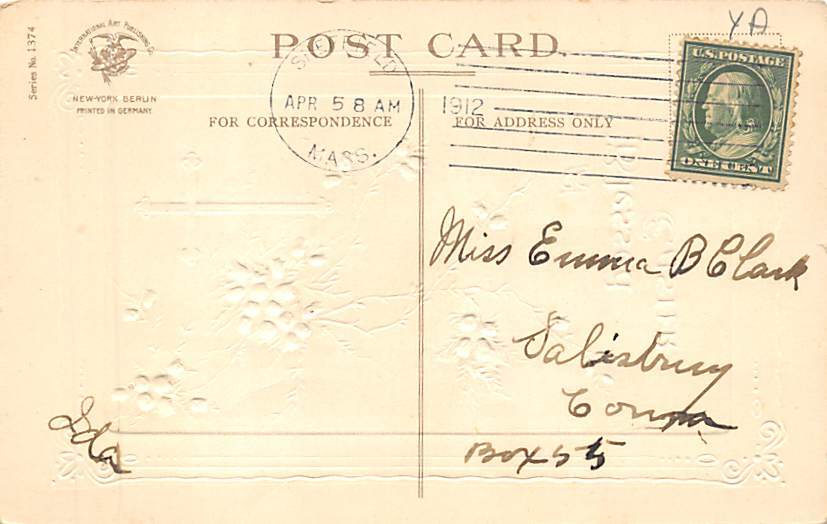 YA
POST CARD
Series No. 1374
INTERNATIONAL ART PUBLISHING CO.
NEW-YORK BERLIN
PRINTED IN GERMANY
SHEFFIELD
APR 5 8 AM
1912
MASS.
FOR CORRESPONDENCE
FOR ADDRESS ONLY
U.S. POSTAGE
ONE CENT
Miss Emma B Clark
Salisbury
Conn
Box 55
Ida